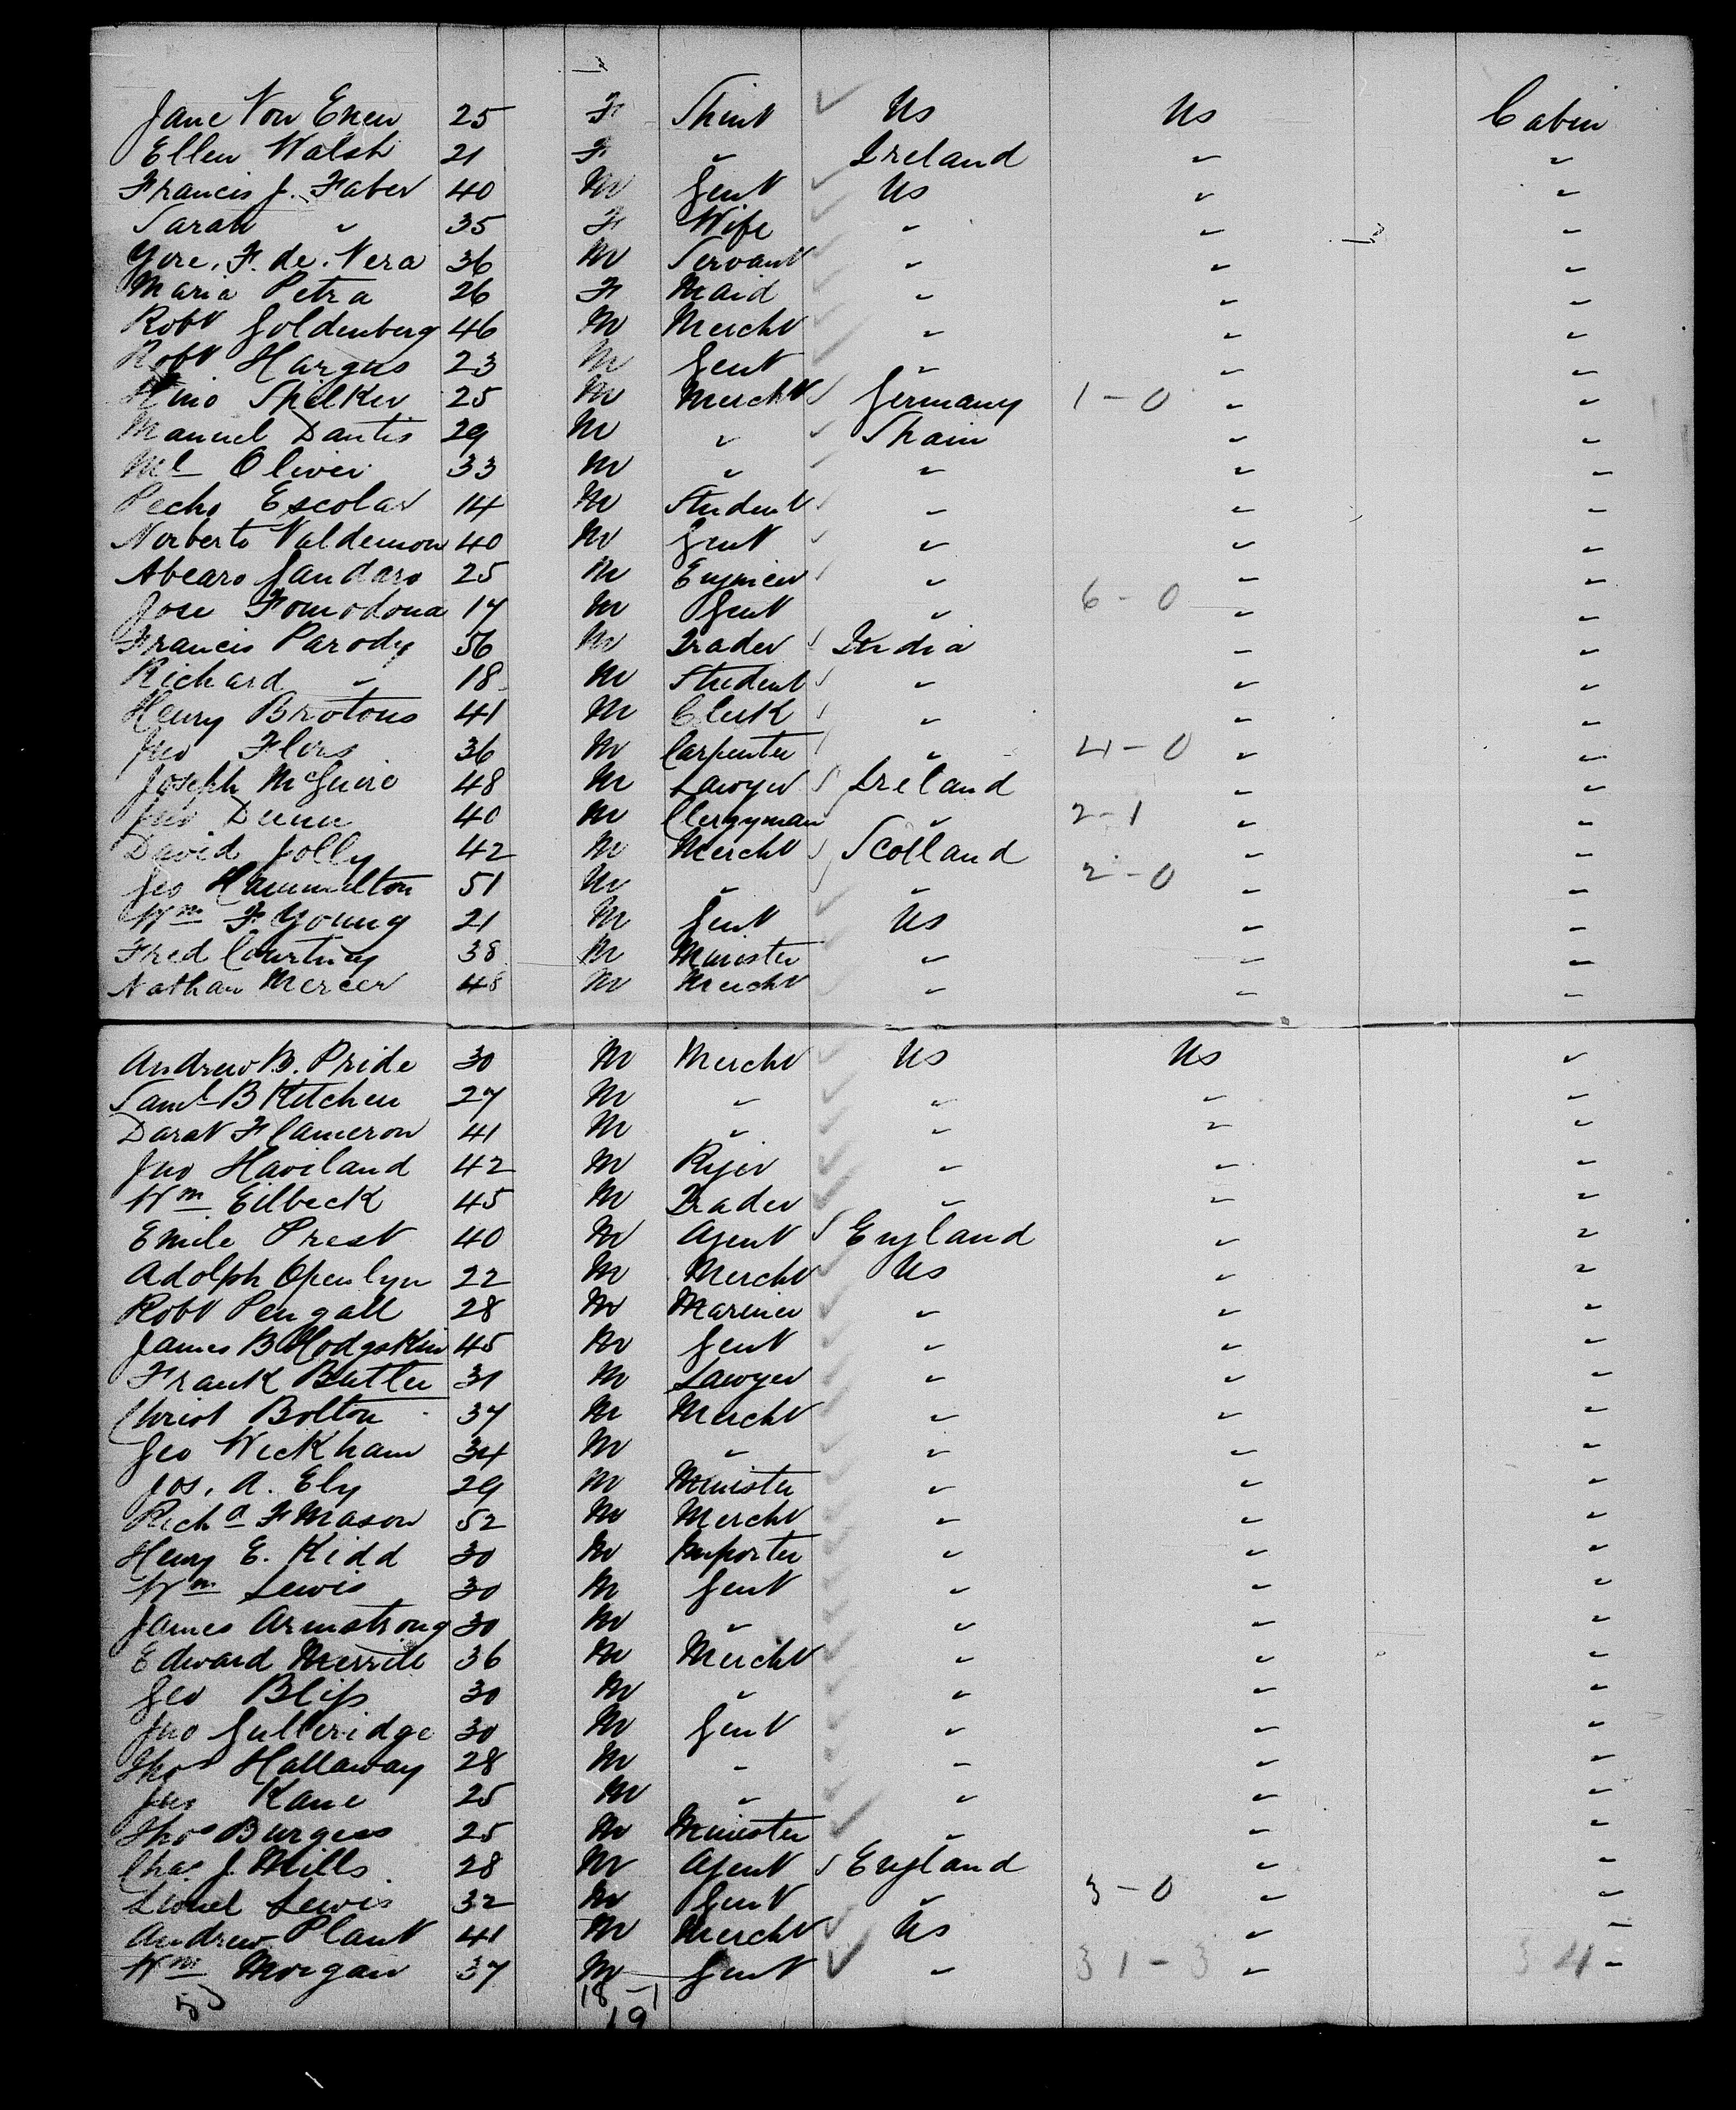 Jane Von Enen 25 F Spins Us Us Cabin
Ellen Walsh 21 F " Ireland " "
Francis J. Faber 40 M Gent Us " "
Sarah " 35 F Wife " " "
F. de. Vera 36 M Servant " " "
Maria Petra 26 F Maid " " "
Robt Goldenberg 46 M Mercht " " "
Robt Hargus 23 M Gent " " "
Spilker 25 M Mercht Germany 1-0 " "
Manuel Dantis 29 M " Spain " "
Ml Oliver 33 M " " " "
Pecho Escolar 14 M Student " " "
Norberto Valdemon 40 M Gent " " "
Abearo Gandaro 25 M Engineer " " "
Jose Fomodona 17 M Gent " 6-0 " "
Francis Parody 56 M Trader India " "
Richard " 18 M Student " " "
Henry Brotons 41 M Clerk " " "
Jno Flors 36 M Carpenter " 4-0 " "
Joseph McGuire 48 M Lawyer Ireland " "
Jno Dunn 40 M Clergyman " 2-1 " "
David Jolly 42 M Mercht Scotland " "
Geo Hammilton 51 M " " 2-0 " "
Wm F Young 21 M Gent Us " "
Fred Courtney 38 M Minister " " "
Nathan Mercer 48 M Mercht " " "
Andrew B. Pride 30 M Mercht Us Us "
Saml B Kitchen 27 M " " " "
Darat F Cameron 41 M " " " "
Jno Haviland 42 M " " "
Wm Eilbeck 45 M Trader " " "
Emile Prest 40 M Agent England " "
Adolph Openlyn 22 M Mercht Us " "
Robt Pengall 28 M Mariner " " "
James B Hodgskin 45 M Gent " " "
Frank Butler 31 M Lawyer " " "
Christ Bolton 37 M Mercht " " "
Geo Wickham 34 M " " " "
Jos. A. Ely 29 M Minister " " "
Richd F Mason 52 M Mercht " " "
Henry E. Kidd 30 M Importer " " "
Wm Lewis 30 M Gent " " "
James Armstrong 30 M " " " "
Edward Merrill 36 M Mercht " " "
Geo Bliss 30 M " " " "
Jno Gulleridge 30 M Gent " " "
Thos Hallaway 28 M " " " "
Jno Kane 25 M " " " "
Thos Burgess 25 M Minister " " "
Chas J. Mills 28 M Agent England " "
Lionel Lewis 32 M Gent " 3-0 " "
Andrew Plant 41 M Mercht Us " "
Wm Morgan 37 M Gent " 31-3 " 34 "
53 18-1
19